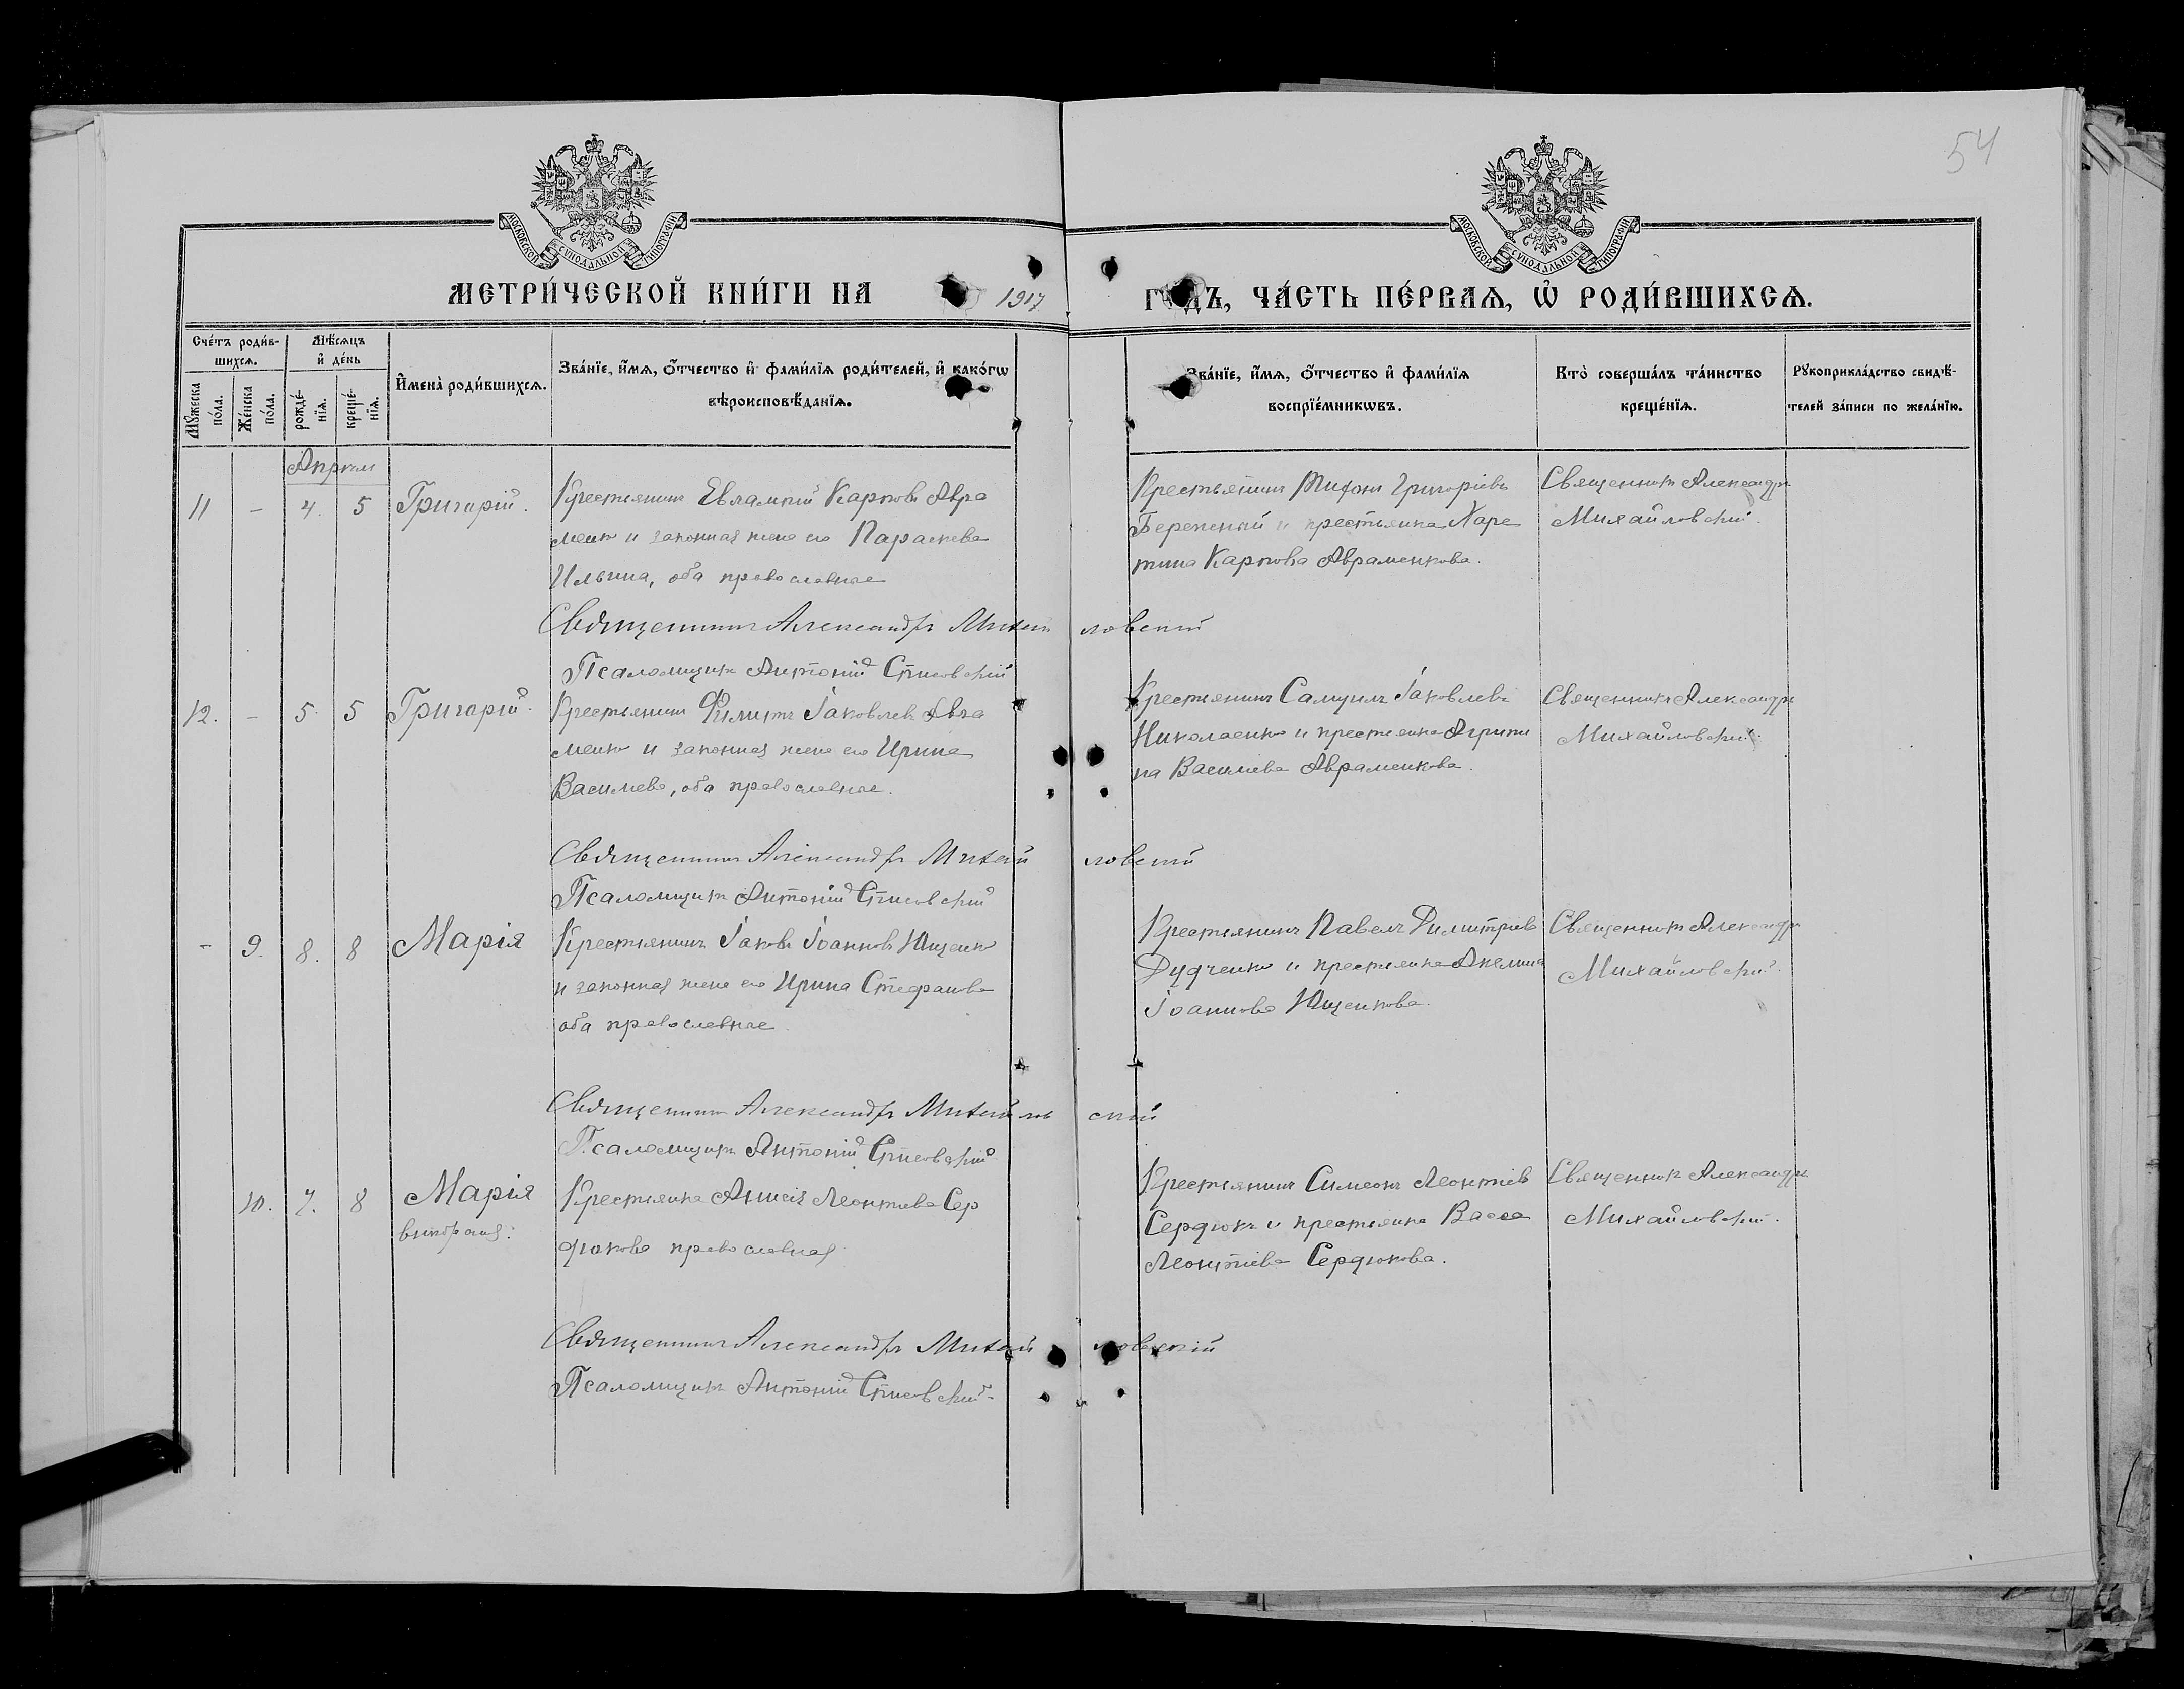 54
МОСКОВСКОЙ СѴНОДАЛЬНОЙ ТИПОГРАФІИ
МОСКОВСКОЙ СѴНОДАЛЬНОЙ ТИПОГРАФІИ
МЕТРИ́ЧЕСКОЙ КНИ́ГИ НА 1917 ГОДЪ, ЧА́СТЬ ПЕ́РВАѦ, Ѽ РОДИ́ВШИХСѦ.
Сче́тъ роди́в-
шихсѧ.
Мꙋжеска
по́ла.
Же́нска
по́ла.
Мѣ́сѧцъ
и҆ де́нь
рожде́-
нїѧ.
креще́-
нїѧ.
И҆мена̀ роди́вшихсѧ.
Зва́нїе, и҆́мѧ, ѻ҆́тчество и҆ фами́лїѧ роди́телей, и҆ како́гѡ
вѣроисповѣ́данїѧ.
Зва́нїе, и҆́мѧ, ѻ҆́тчество и҆ фами́лїѧ
воспрїе́мникѡвъ.
Кто̀ соверша́лъ та́инство
креще́нїѧ.
Рꙋкоприкла́дство свидѣ́-
телей за́писи по жела́нїю.
Април
11 - 4. 5 Григорій.
Крестьянинъ Евлампій Карповъ Авра
менко и законная жена его Параскева
Ильина, оба православные
Крестьянинъ Тихонъ Григоріевъ
Береженый и крестьянка Харе
тина Карпова Авраменкова.
Священникъ Александръ
Михайловскій.
Священникъ Александръ Михайловскій
Псаломщикъ Антоній
12. - 5. 5 Григорій.
Крестьянинъ Филиппъ Іаковлевъ Авра
менко и законная жена его Ирина
Васильева, оба православные.
Крестьянинъ Самуилъ Іаковлевъ
Николаенко и крестьянка Агрипи
на Васильева Авраменкова.
Священникъ Александръ
Михайловскій.
Священникъ Александръ Михайловскій
Псаломщикъ Антоній
- 9. 8. 8 Марія
Крестьянинъ Іаковъ Іоанновъ Ющенко
и законная жена его Ирина Стефанова
оба православные
Крестьянинъ Павелъ Димитріевъ
Дудченко и крестьянка Акелина
Іоаннова Ющенкова.
Священникъ Александръ
Михайловскій.
Священникъ Александръ Михайловскій
Псаломщикъ Антоній
10. 7. 8 Марія
внебрачная.
Крестьянка Анисія Леонтьева Сер
дюкова православная
Крестьянинъ Симеонъ Леонтіевъ
Сердюкъ и крестьянка Васса
Леонтіева Сердюкова.
Священникъ Александръ
Михайловскій.
Священникъ Александръ Михайловскій
Псаломщикъ Антоній